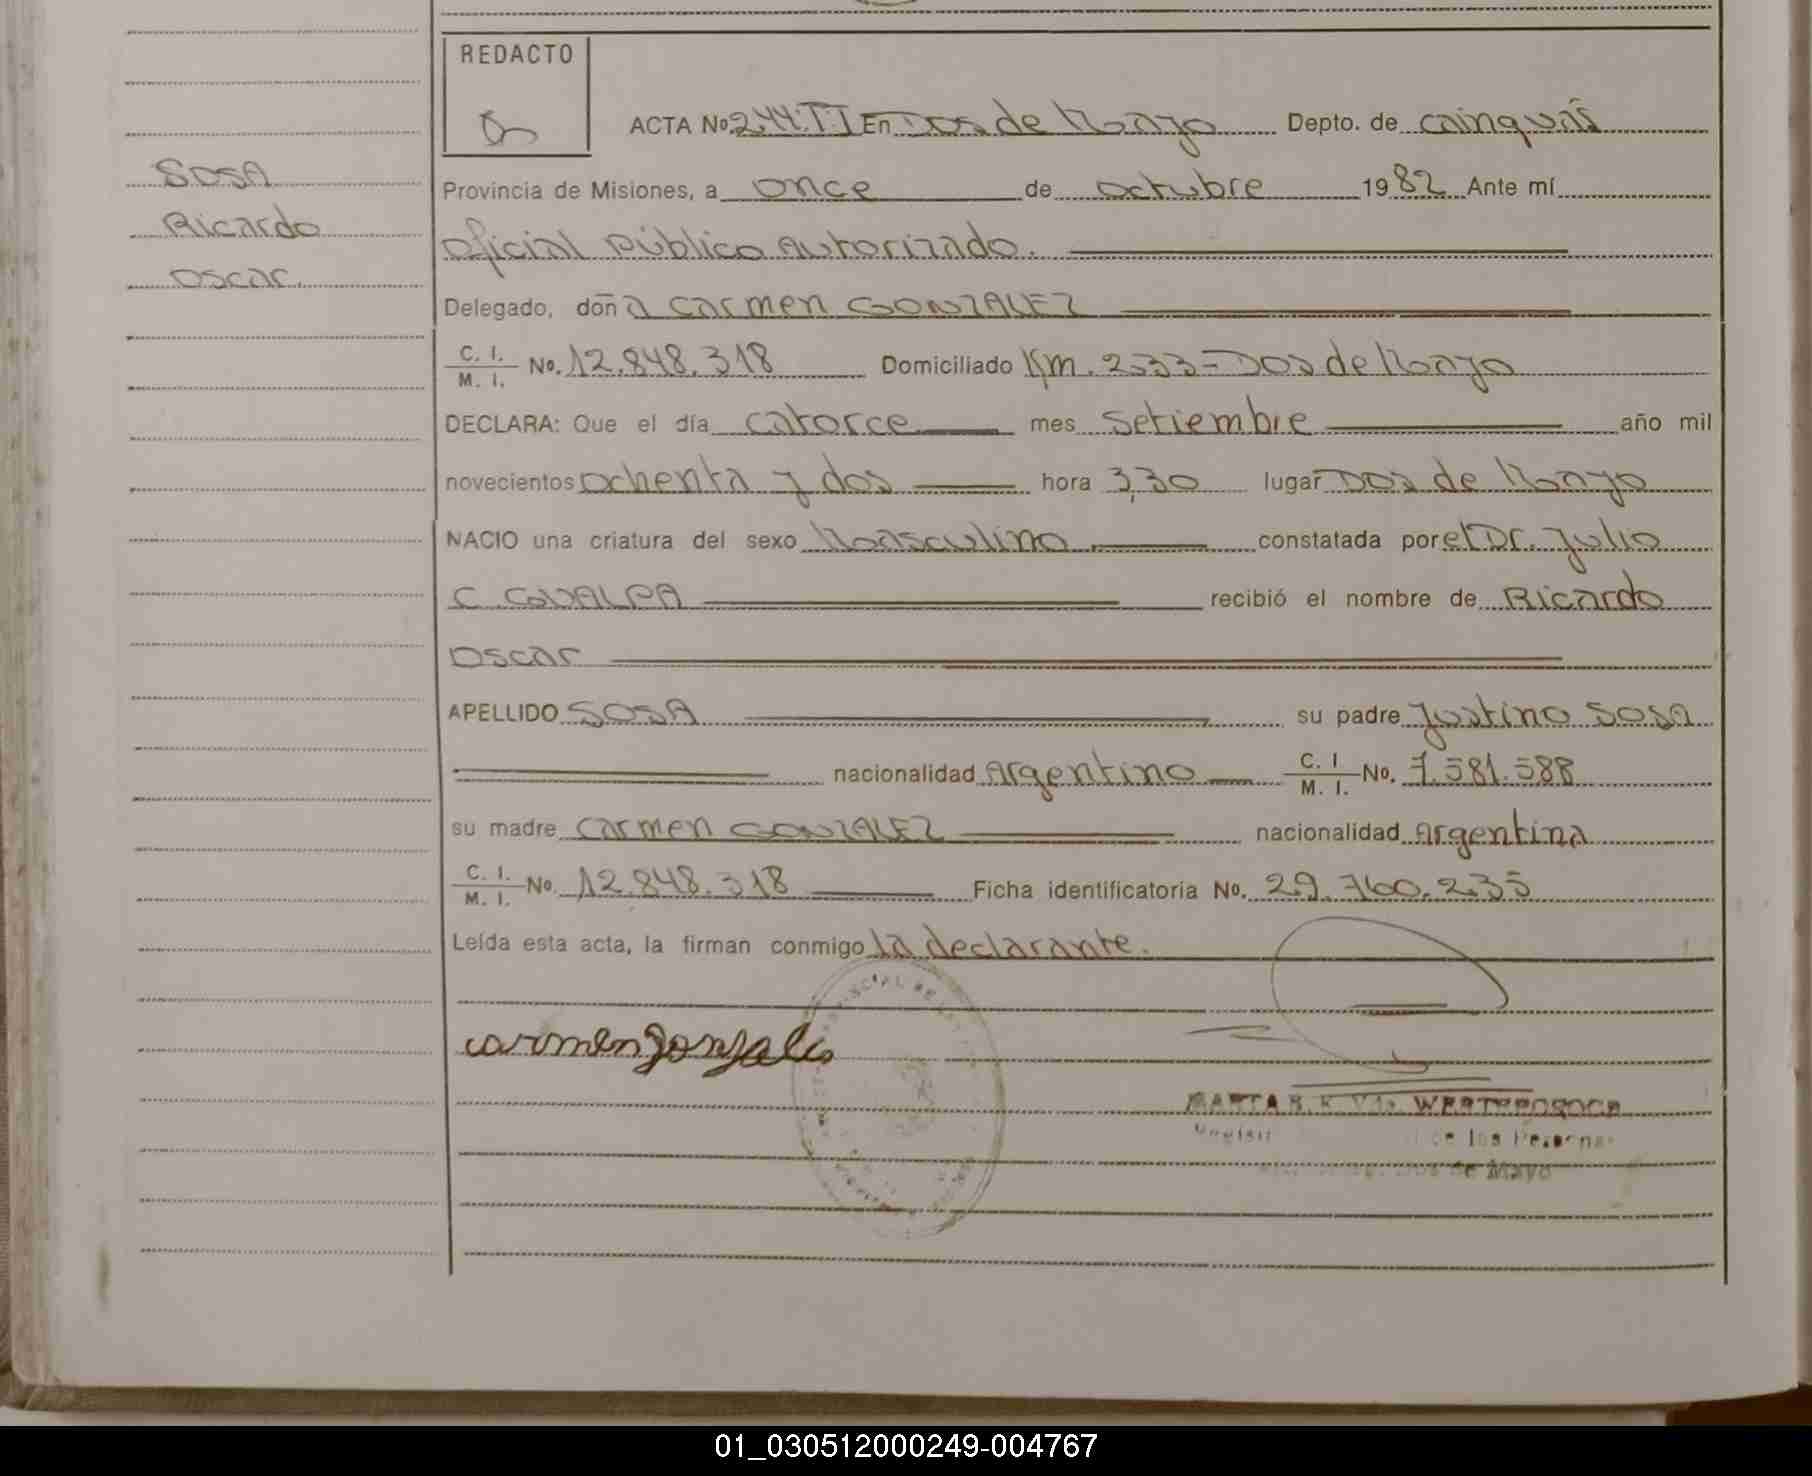 REDACTO
ACTA No. 244.TI En Dos de Mayo Depto. de Cainguás
SOSA
Ricardo
Oscar.
Provincia de Misiones, a once de octubre 1982 Ante mí
Oficial Público Autorizado.
Delegado, doña Carmen GONZALEZ
C. I.
M. I. No. 12.848.318 Domiciliado Km. 233 = Dos de Mayo
DECLARA: Que el día catorce mes Setiembre año mil
novecientos ochenta y dos hora 3,30 lugar Dos de Mayo
NACIO una criatura del sexo Masculino constatada por el Dr. Julio
C. GUALPA recibió el nombre de Ricardo
Oscar
APELLIDO SOSA su padre Justino SOSA
nacionalidad Argentino C. I.
M. I. No. 7.581.588
su madre Carmen GONZALEZ nacionalidad Argentina
C. I.
M. I. No. 12.848.318 Ficha identificatoria No. 29.760.235
Leída esta acta, la firman conmigo la declarante.
carmen gonzales
MARTA
de las Personas
de Mayo
01_030512000249-004767